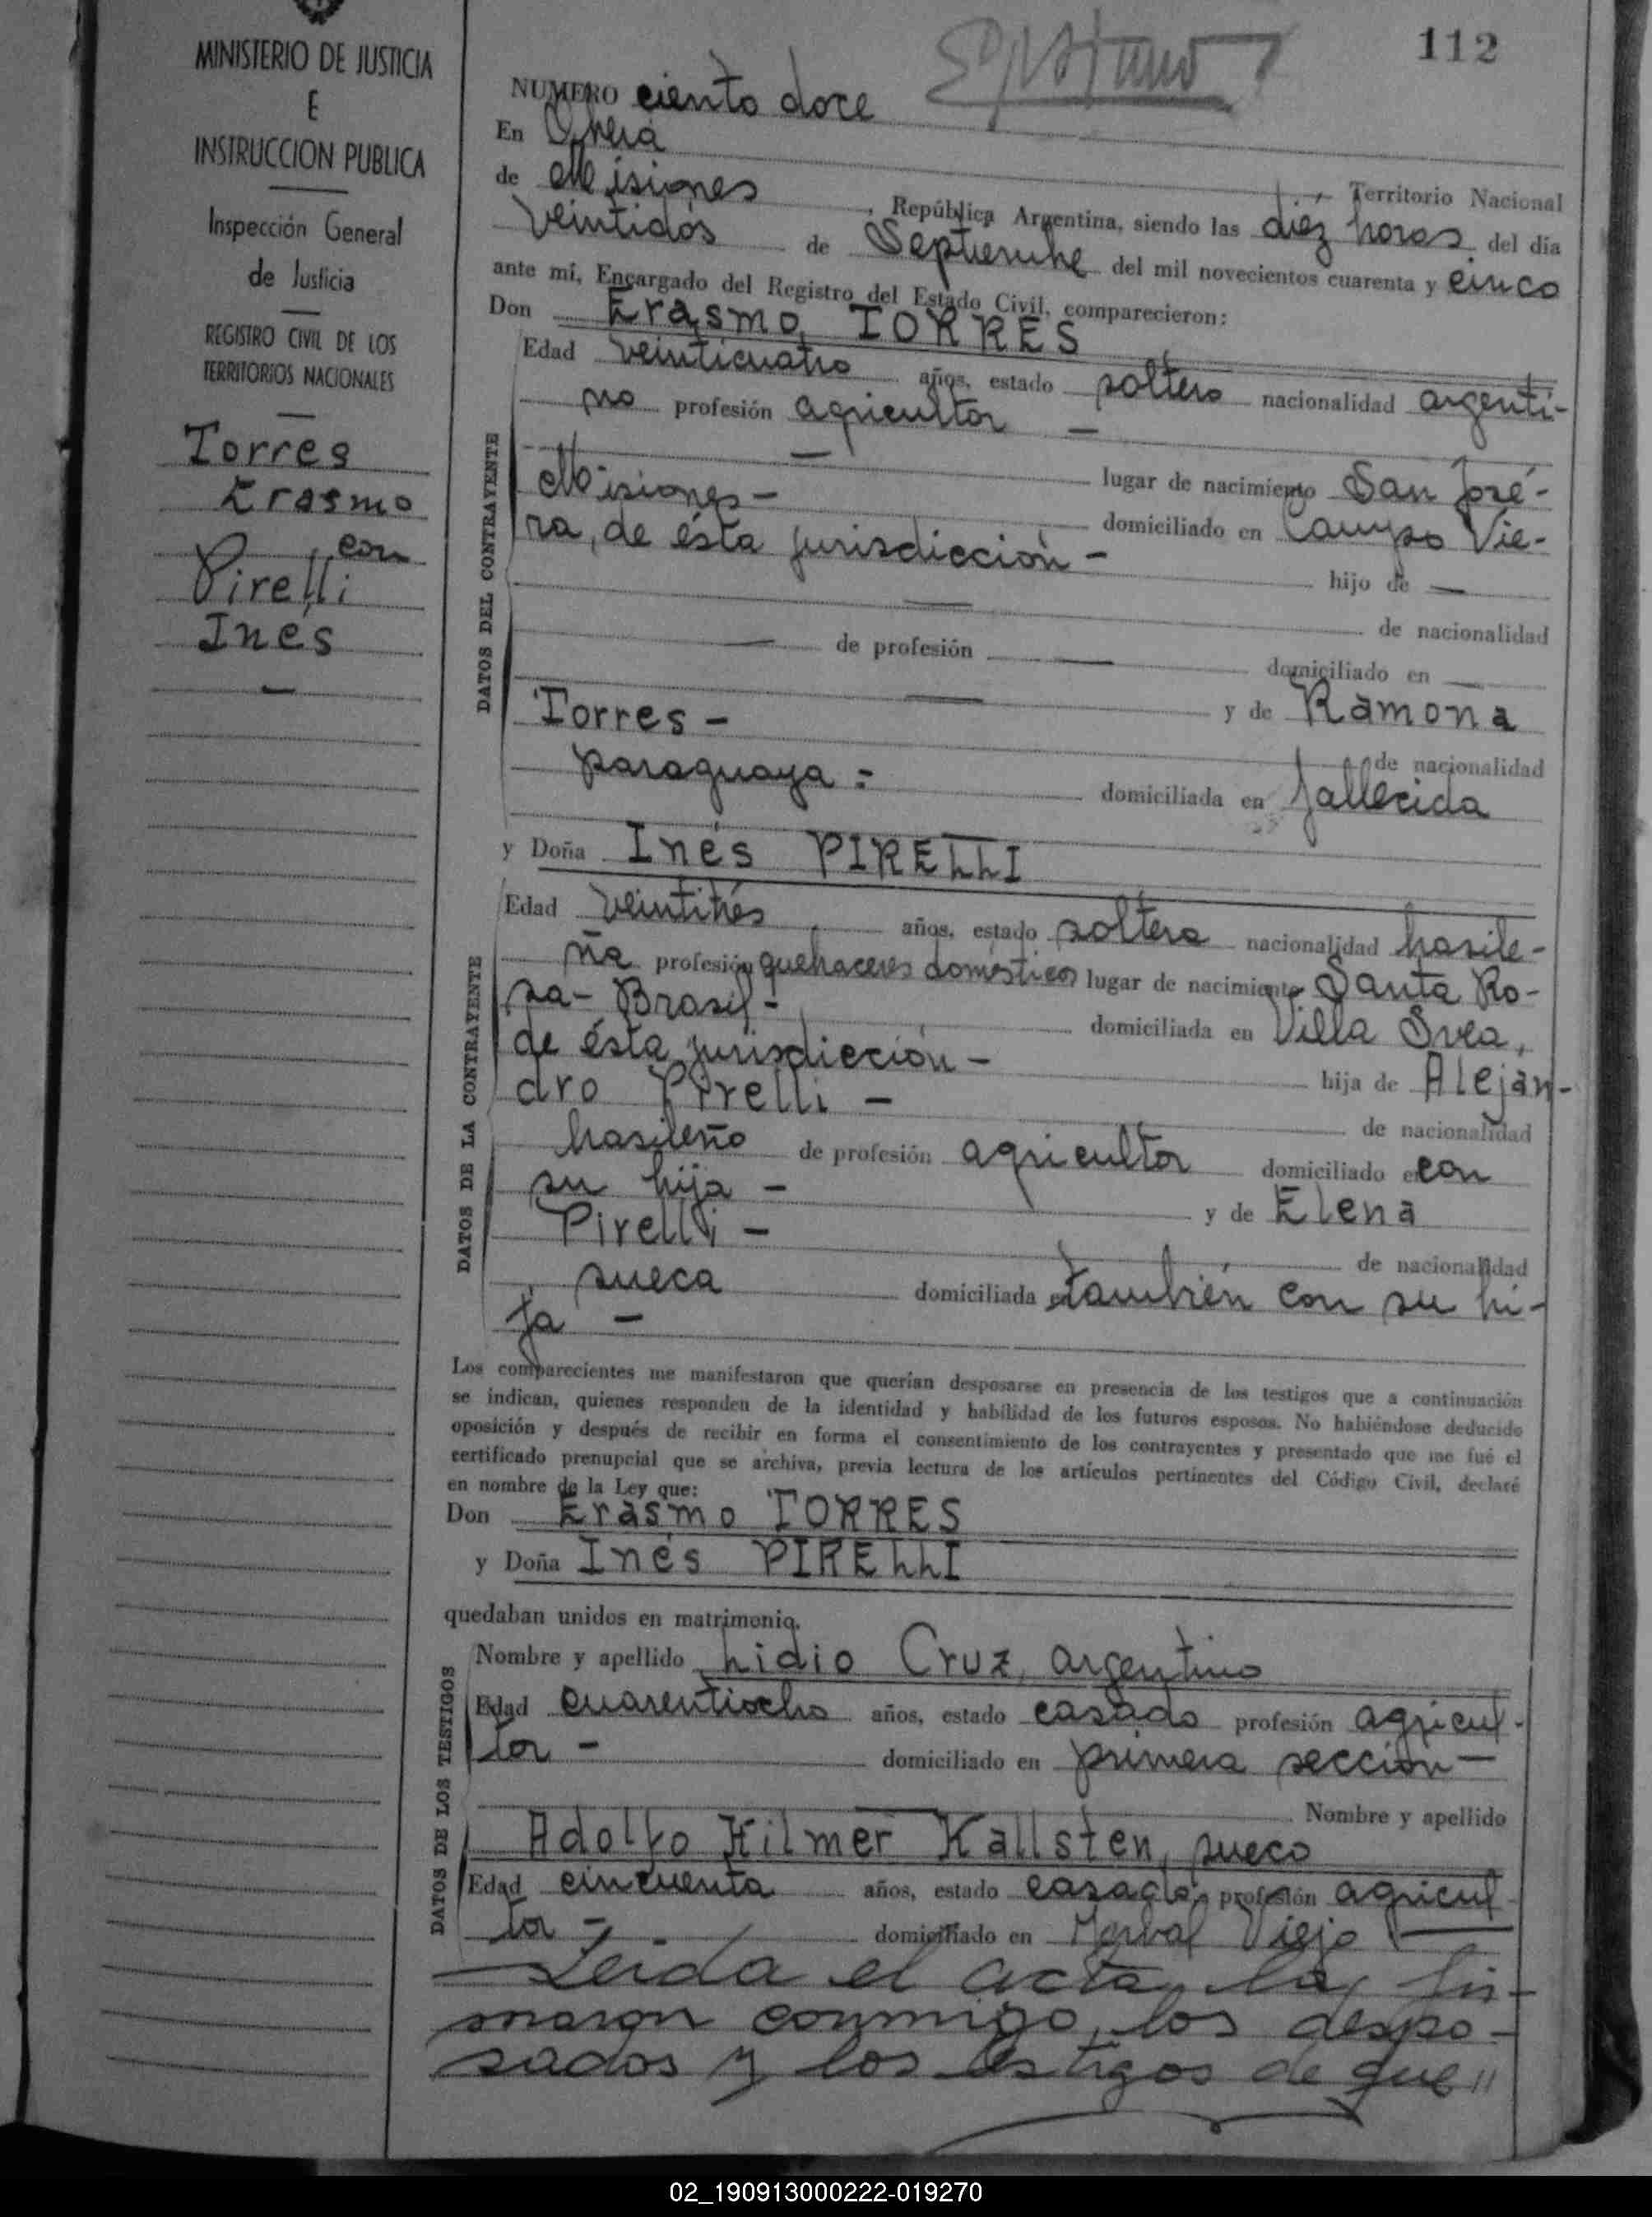 112
MINISTERIO DE JUSTICIA
E
INSTRUCCION PUBLICA
Inspección General
de Justicia
REGISTRO CIVIL DE LOS
TERRITORIOS NACIONALES
Torres
Erasmo
con
Pirelli
Inés
NUMERO ciento doce
En Oberá
, Territorio Nacional
de Misiones, República Argentina, siendo las diez horas del día
veintidós de Septiembre del mil novecientos cuarenta y cinco
ante mí, Encargado del Registro del Estado Civil, comparecieron:
Don Erasmo TORRES
DATOS DEL CONTRAYENTE
Edad veinticuatro años, estado soltero nacionalidad argenti-
no profesión agricultor —
— lugar de nacimiento San José-
Misiones- domiciliado en Campo Vie-
ra, de ésta jurisdicción- hijo de —
— de nacionalidad
— de profesión — domiciliado en —
— y de Ramona
Torres - de nacionalidad
paraguaya = domiciliada en fallecida
y Doña Inés PIRELLI
DATOS DE LA CONTRAYENTE
Edad veintitrés años, estado soltera nacionalidad brasile-
ña profesión quehaceres domésticos lugar de nacimiento Santa Ro-
sa- Brasil- domiciliada en Villa Svea,
de ésta jurisdicción - hija de Alejan-
dro Pirelli - de nacionalidad
brasileño de profesión agricultor domiciliado en con
su hija - y de Elena
Pirelli - de nacionalidad
sueca domiciliada en también con su hi-
ja -
Los comparecientes me manifestaron que querían desposarse en presencia de los testigos que a continuación
se indican, quienes responden de la identidad y habilidad de los futuros esposos. No habiéndose deducido
oposición y después de recibir en forma el consentimiento de los contrayentes y presentado que me fué el
certificado prenupcial que se archiva, previa lectura de los artículos pertinentes del Código Civil, declaré
en nombre de la Ley que:
Don Erasmo TORRES
y Doña Inés PIRELLI
quedaban unidos en matrimonio.
DATOS DE LOS TESTIGOS
Nombre y apellido Lidio Cruz, argentino
Edad cuarentiocho años, estado casado profesión agricul-
tor - domiciliado en primera sección —
Nombre y apellido
Adolfo Hilmer Kallsten, sueco
Edad cincuenta años, estado casado, profesión agricul-
tor - domiciliado en Yerbal Viejo —
— Leida el acta, la fir-
maron conmigo, los despo-
sados y los testigos de que //
02_190913000222-019270